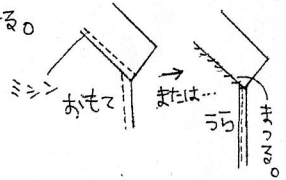 る。
ミシン
おもて
または…
うら
まつる。